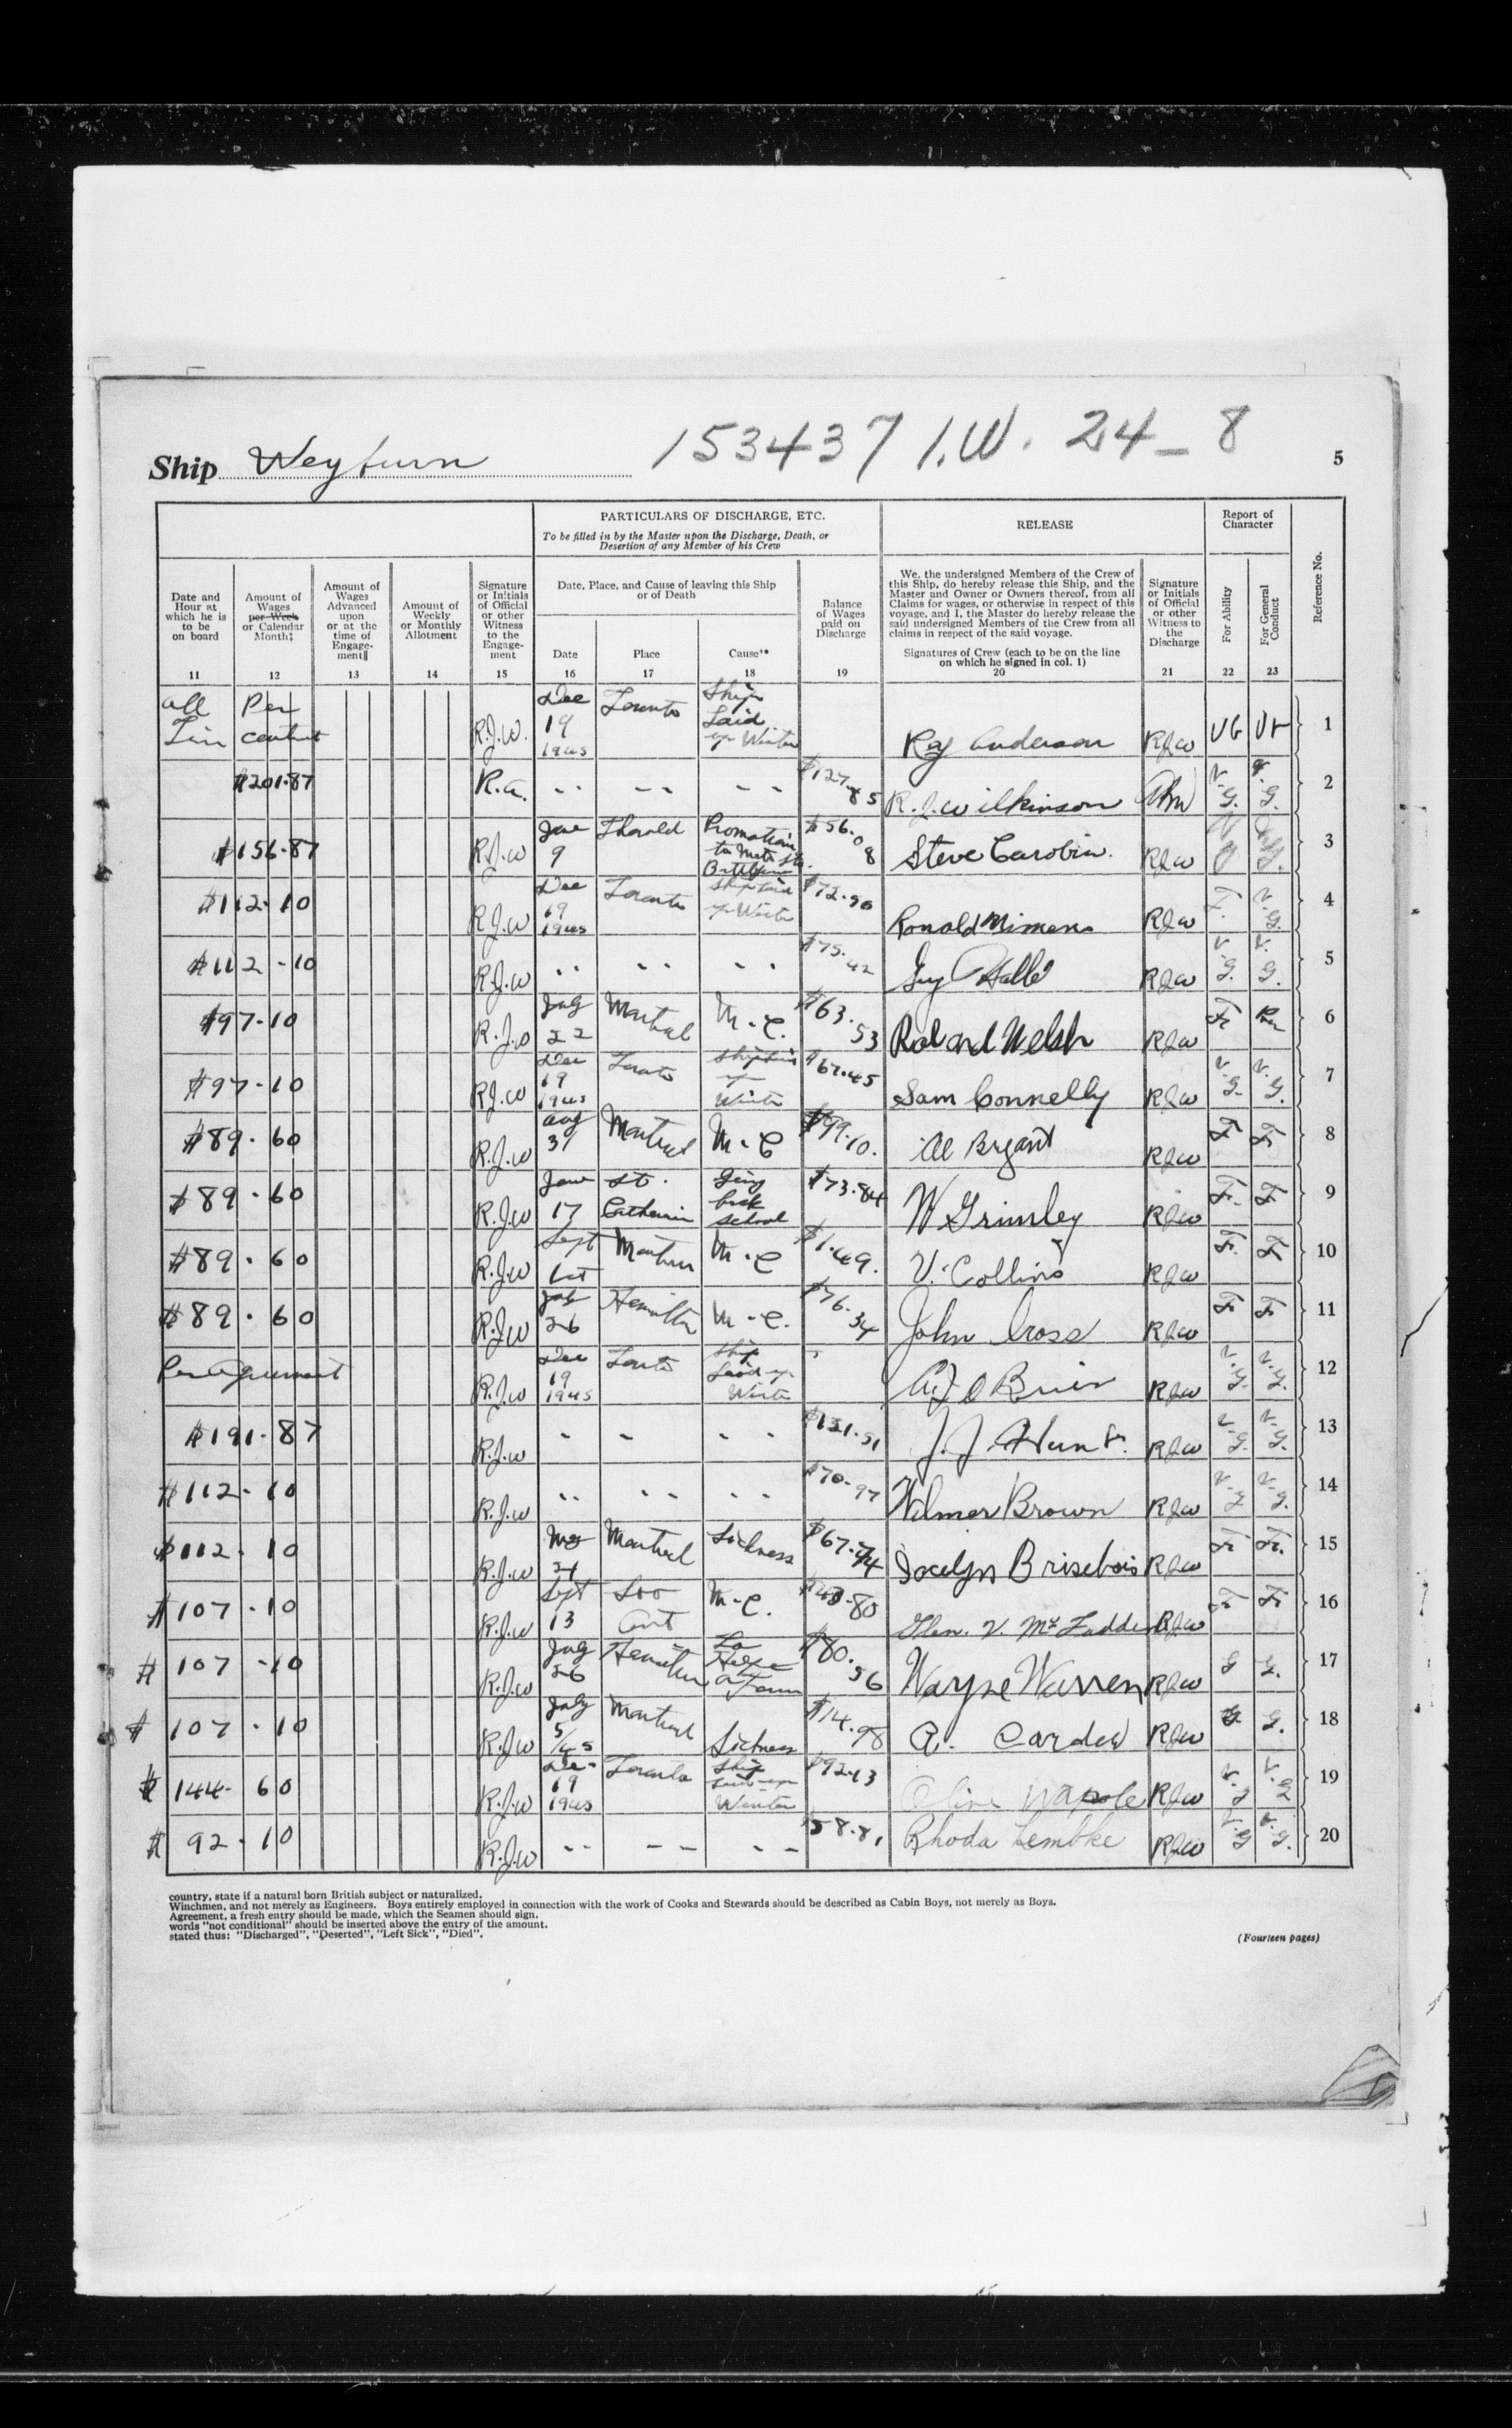 Ship Weyburn 153437 I.W. 24-8 5
PARTICULARS OF DISCHARGE, ETC.
To be filled in by the Master upon the Discharge, Death, or
Desertion of any Member of his Crew
RELEASE
Report of
Character
Reference No.
Date and
Hour at
which he is
to be
on board
11
Amount of
Wages
per Week
or Calendar
Month‡
12
Amount of
Wages
Advanced
upon
or at the
time of
Engage-
ment‖
13
Amount of
Weekly
or Monthly
Allotment
14
Signature
or Initials
of Official
or other
Witness
to the
Engage-
ment
15
Date, Place, and Cause of leaving this Ship
or of Death
Date
16
Place
17
Cause**
18
Balance
of Wages
paid on
Discharge
19
We, the undersigned Members of the Crew of
this Ship, do hereby release this Ship, and the
Master and Owner or Owners thereof, from all
Claims for wages, or otherwise in respect of this
voyage, and I, the Master do hereby release the
said undersigned Members of the Crew from all
claims in respect of the said voyage.
Signatures of Crew (each to be on the line
on which he signed in col. 1)
20
Signature
or Initials
of Official
or other
Witness to
the
Discharge
21
For Ability
22
For General
Conduct
23
all Per R.J.W. Dec 19 1945 Toronto Ship Laid up Winter Roy Anderson RJW VG 1
$201.87 R.A. - - - - - - $127.85 R.J. Wilkinson V.G. V.G. 2
$156.87 R.J.W 9 Thorold Promotion to $56.08 Steve Carobin. RJW 3
$112.10 R.J.W Dec 19 1945 Toronto Ship Laid up Winter $72.90 Ronald Mimens RJW F. V.G. 4
$112-10 R.J.W - - - - - - $75.42 Guy Hallé RJW V.G. V.G. 5
$97-10 R.J.W July 22 Montreal M.C. $63.53 Roland Welsh RJW Fr 6
$97-10 R.J.W Dec 19 1945 Toronto Ship Laid up Winter $67.45 Sam Connelly RJW V.G. V.G. 7
$89.60 R.J.W Aug 31 Montreal M.C $99.10. Al Bryant RJW F F 8
$89.60 R.J.W 17 St. Catherin Going back school $73.84 W Grimley RJW F. F 9
$89.60 R.J.W Sept 1st M.C $1.49. V. Collins RJW F. F 10
$89.60 R.J.W 26 Hamilton M.C. $76.34 John Cross RJW F F 11
Per Agreement R.J.W Dec 19 1945 Toronto Ship Laid up Winter RJW V.G. V.G. 12
$191.87 R.J.W - - - - $131.51 J.J. Hunt. RJW V.G. V.G. 13
$112.10 R.J.W - - - - - - $70.97 Wilmer Brown RJW V.G V.G. 14
$112.10 R.J.W Montreal Sickness $67.74 Jocelyn Brisebois RJW Fr Fr. 15
$107.10 R.J.W Sept 13 Soo Ont M.C. $43.80 Glen. V. McFadden RJW Fr Fr 16
$107-10 R.J.W July 26 Hamilton To Help on Farm $80.56 Wayne Warren RJW G G. 17
$107.10 R.J.W July 5/45 Montreal Sickness $14.98 A. Cardew RJW G G. 18
$144.60 R.J.W Dec 19 1945 Toronto Ship Laid up Winter $92.13 RJW V.G V.G 19
$92.10 R.J.W - - - - - - $58.81 Rhoda Lembke RJW V.G V.G. 20
country, state if a natural born British subject or naturalized.
Winchmen, and not merely as Engineers. Boys entirely employed in connection with the work of Cooks and Stewards should be described as Cabin Boys, not merely as Boys.
Agreement, a fresh entry should be made, which the Seamen should sign.
words "not conditional" should be inserted above the entry of the amount.
stated thus: "Discharged", "Deserted", "Left Sick", "Died".
(Fourteen pages)